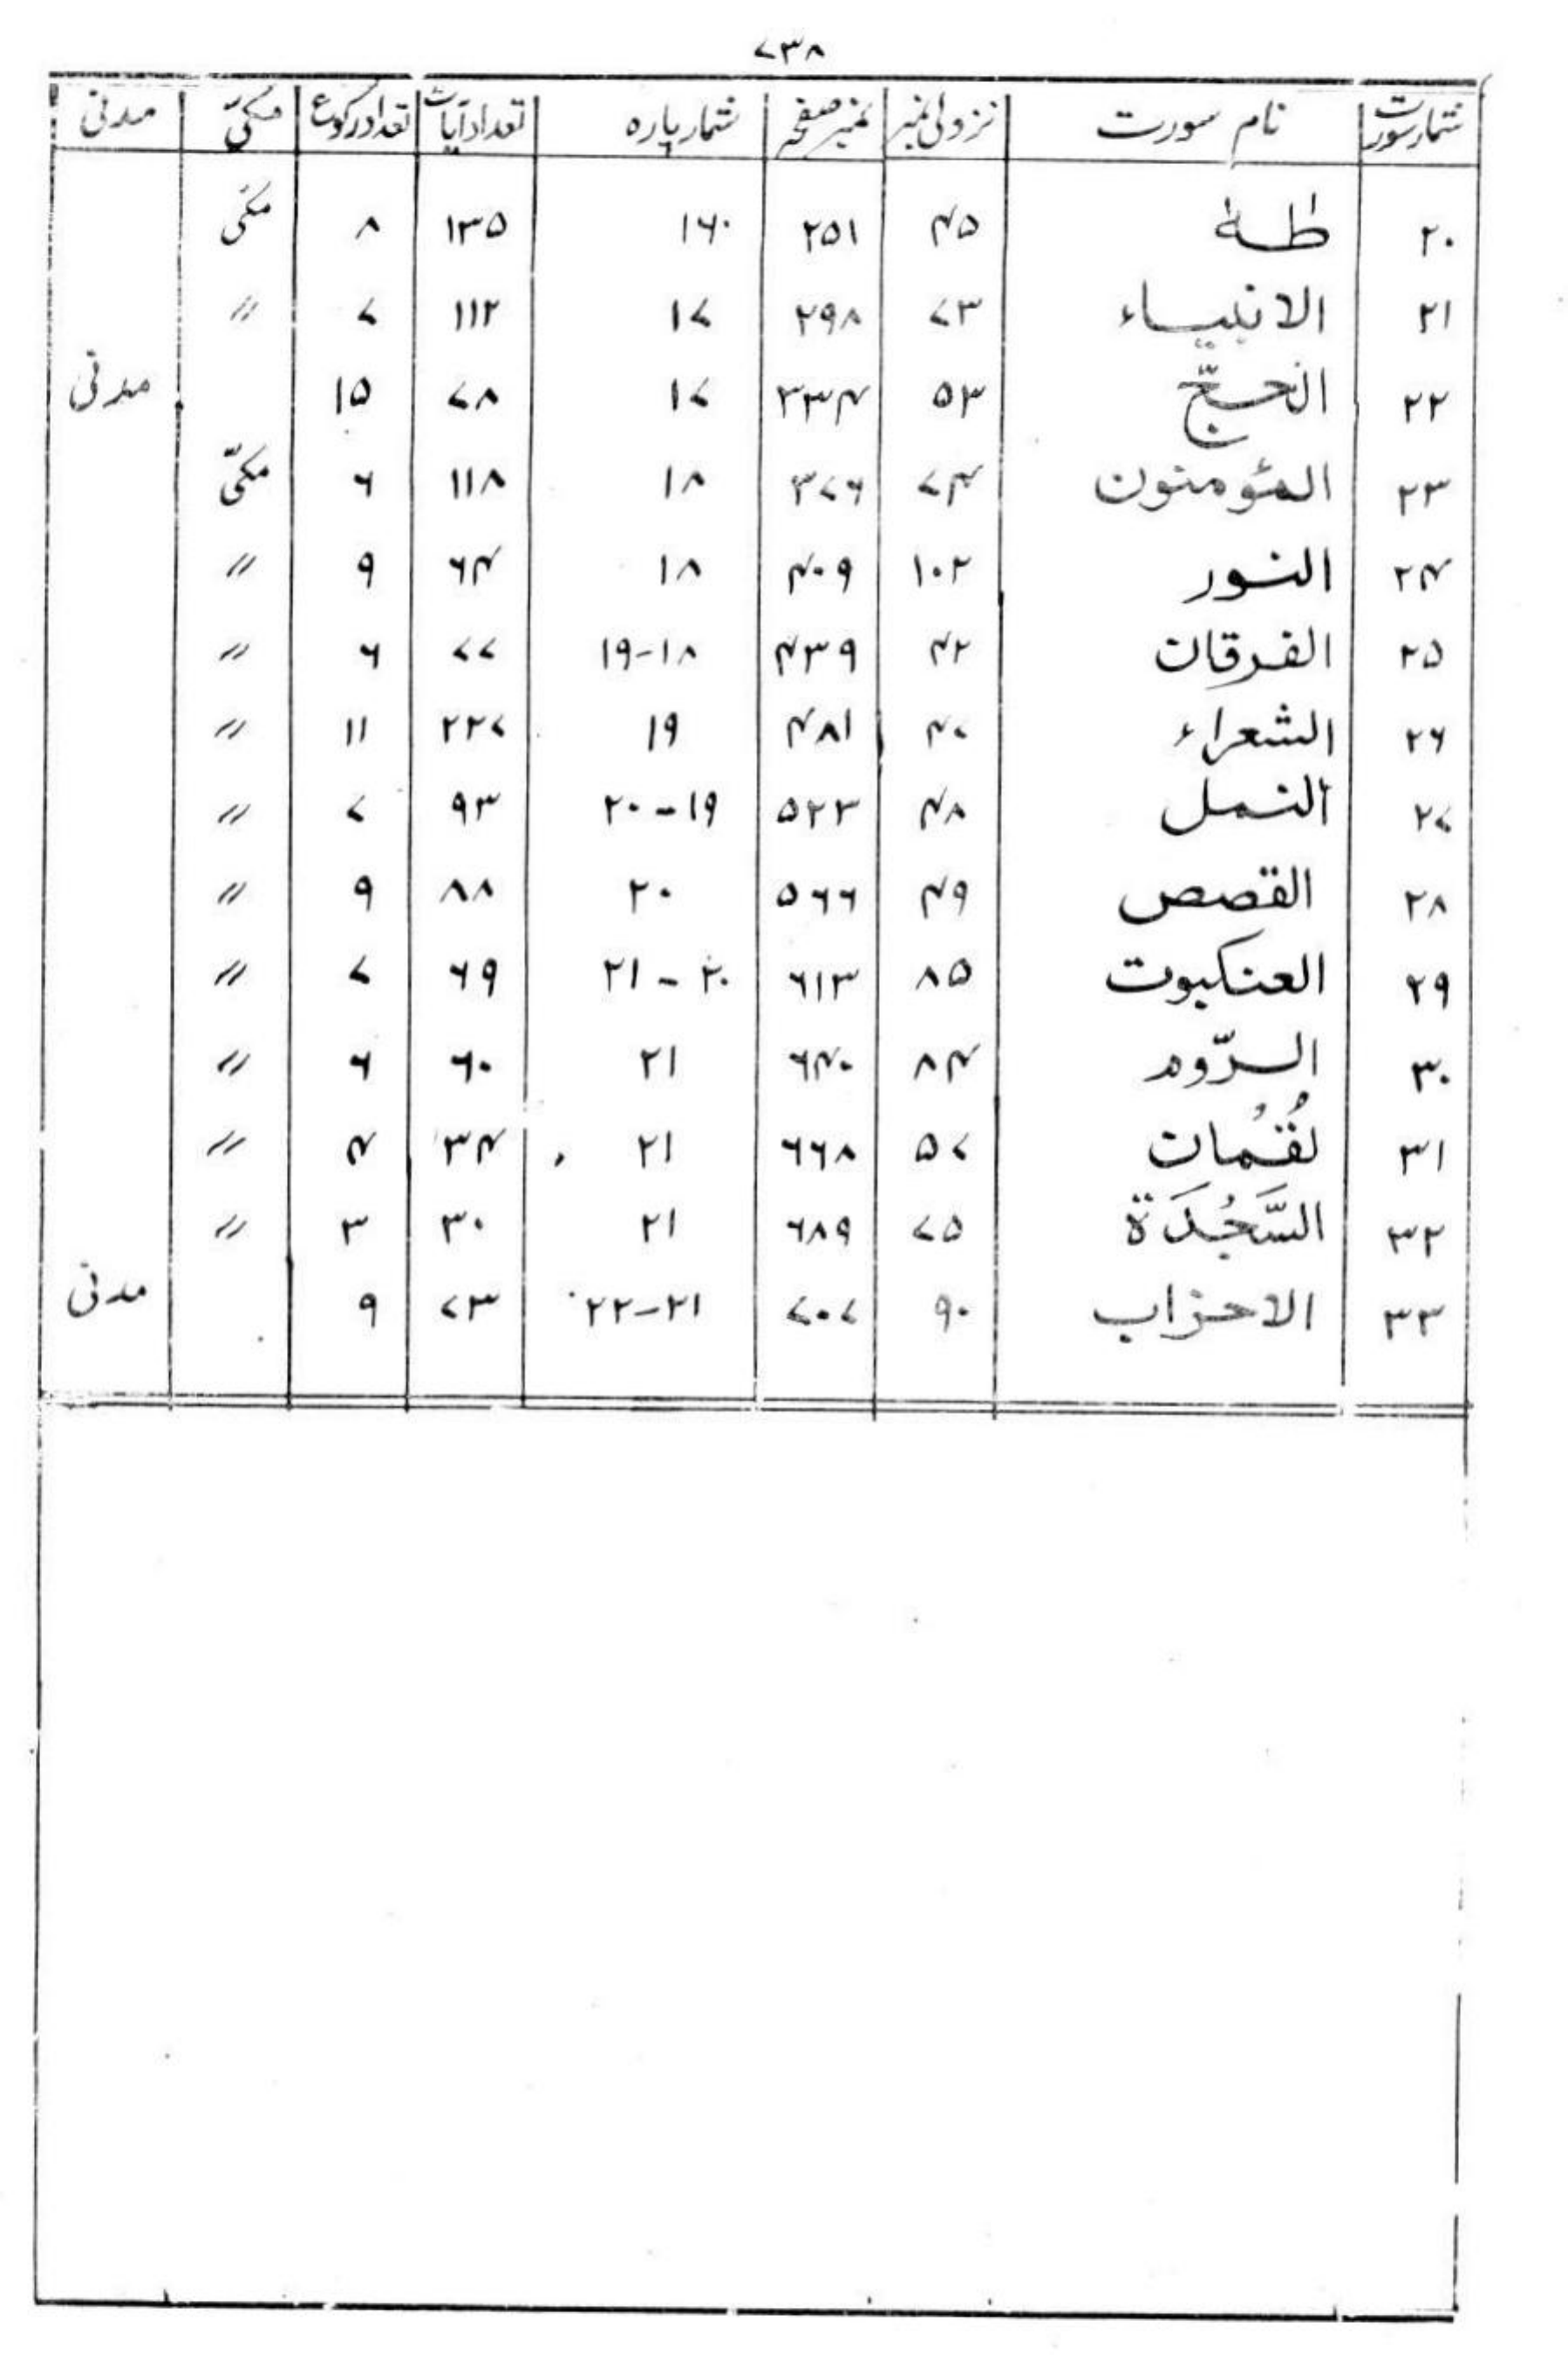 ۷۳۸
شمار سورت نام سورت نزولی نمبر نمبر صفحہ شمار پارہ تعداد آیات تعداد رکوع مکیّ مدنی
۲۰ طٰہٰ ۴۵ ۲۵۱ ۱۶ ۱۳۵ ۸ مکیّ
۲۱ الانبیاء ۷۳ ۲۹۸ ۱۷ ۱۱۲ ۷ 〃
۲۲ الحجّ ۵۳ ۳۳۴ ۱۷ ۷۸ ۱۵ مدنی
۲۳ المؤمنون ۷۴ ۳۷۶ ۱۸ ۱۱۸ ۶ مکیّ
۲۴ النور ۱۰۲ ۴۰۹ ۱۸ ۶۴ ۹ 〃
۲۵ الفرقان ۴۲ ۴۳۹ ۱۸-۱۹ ۷۷ ۶ 〃
۲۶ الشعراء ۴۷ ۴۸۱ ۱۹ ۲۲۷ ۱۱ 〃
۲۷ النمل ۴۸ ۵۲۳ ۱۹-۲۰ ۹۳ ۷ 〃
۲۸ القصص ۴۹ ۵۶۶ ۲۰ ۸۸ ۹ 〃
۲۹ العنکبوت ۸۵ ۶۱۳ ۲۰-۲۱ ۶۹ ۷ 〃
۳۰ الرّوم ۸۴ ۶۴۰ ۲۱ ۶۰ ۶ 〃
۳۱ لُقُمان ۵۷ ۶۶۸ ۲۱ ۳۴ ۴ 〃
۳۲ السَّجُدَة ۷۵ ۶۸۹ ۲۱ ۳۰ ۳ 〃
۳۳ الاحزاب ۹۰ ۷۰۷ ۲۱-۲۲ ۷۳ ۹ مدنی